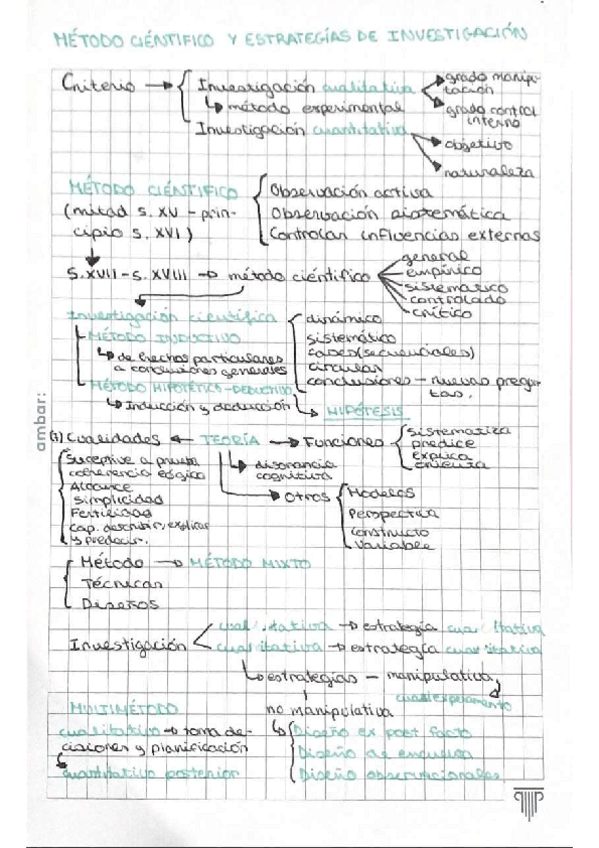 MÉTODO CIÉNTIFICO Y ESTRATEGÍAS DE INVESTIGACIÓN
Criterio → Investigación cualitativa
grado manipu-
tación
↳ método experimental
grado control
interno
Investigación cuantitativa
objetivo
naturaleza
MÉTODO CIÉNTIFICO
Observación activa
(mitad S. XV - prin-
Observación sistemática
cipio S. XVI)
Controlar influencias externas
S. XVII - S. XVIII → método científico
general
empírico
sistemático
controlado
crítico
Investigación científica
dinámico
MÉTODO INDUCTIVO
sistemático
↳ de hechos particulares
fases (secuenciales)
a conclusiones generales
circular
MÉTODO HIPOTÉTICO-DEDUCTIVO
conclusiones - nuevas pregun-
tas.
↳ Inducción y deducción
↳ HIPÓTESIS
ambar:
(1) Cualidades ← TEORÍA → Funciones
sistematiza
predice
explica
orienta
Suceptive a prueba
coherencia lógica
disonancia
cognitiva
Alcance
simplicidad
Fertilidad
cap. describir, explicar
y predecir.
Otros
Modelos
Perspectiva
Constructo
Variable
Método → MÉTODO MIXTO
Técnicas
Diseños
Investigación
cualitativa → estrategia cualitativa
cuantitativa → estrategia cuantitativa
↳ estrategias - manipulativa
cuasiexperimento
MULTIMÉTODO
no manipulativa
cualitativo → toma de-
cisiones y planificación
↳ Diseño ex post facto
Diseño de encuesta
cuantitativo posterior
Diseño observacionales